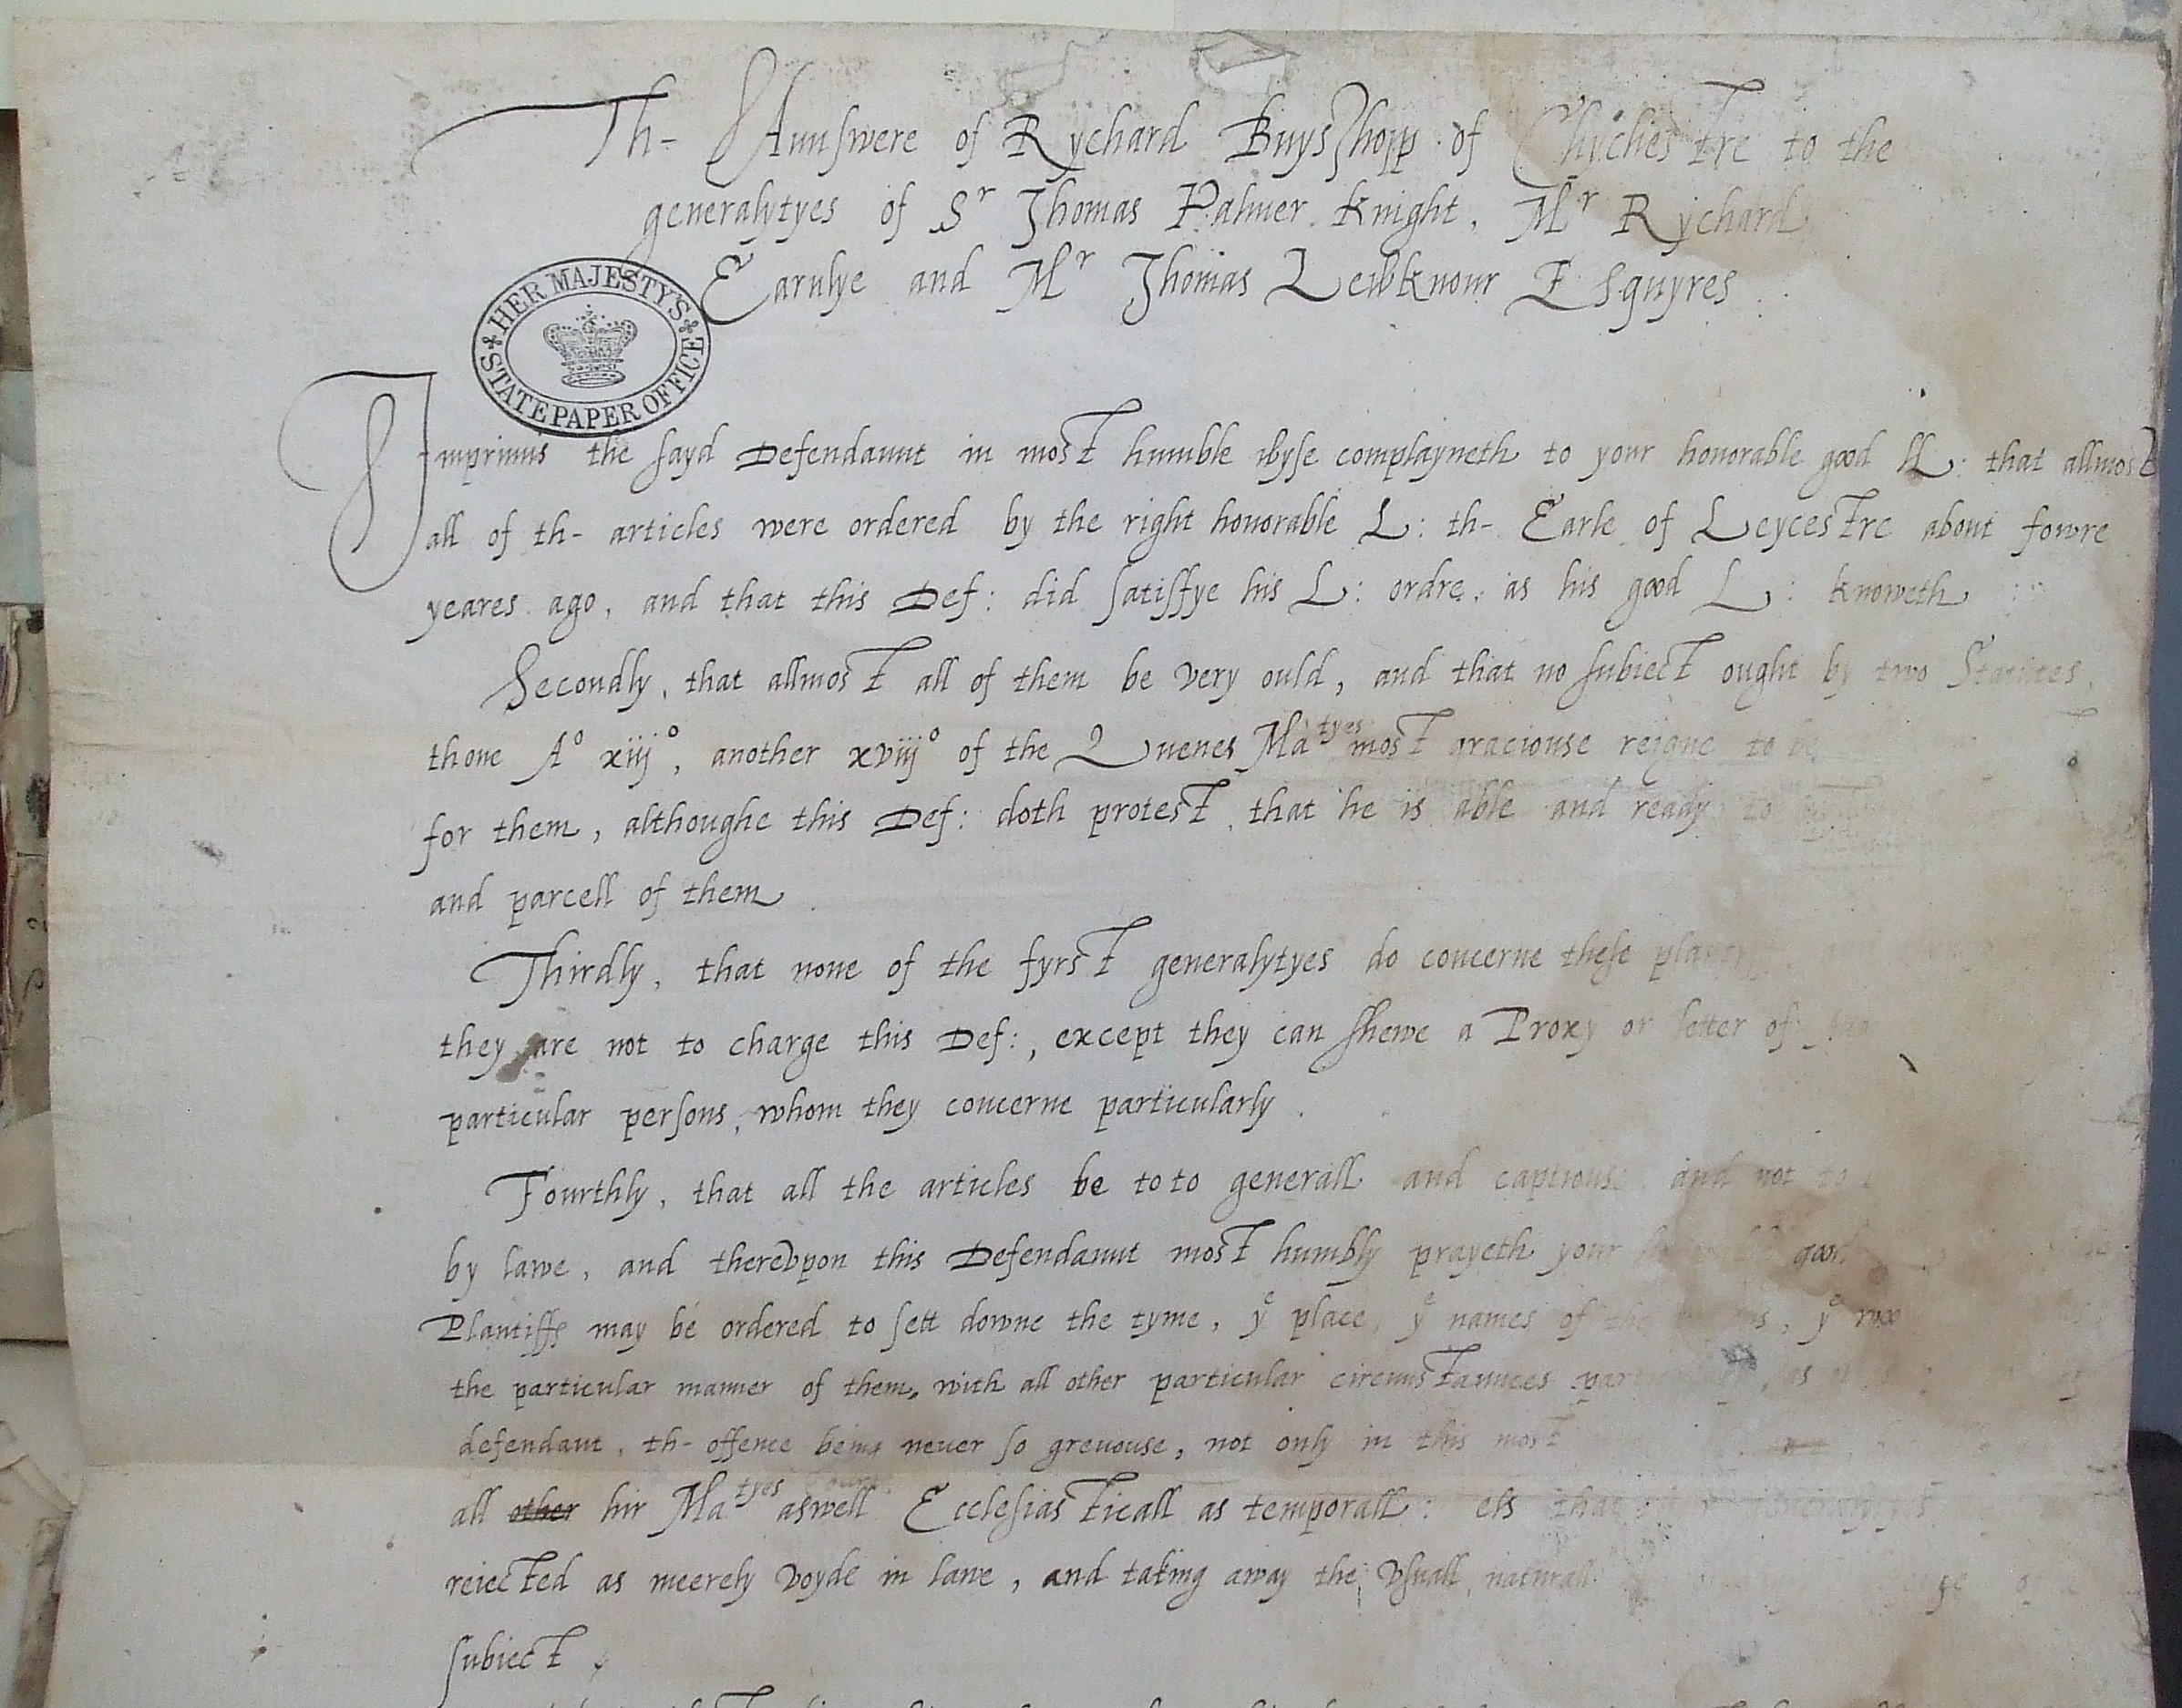 Th- Aunswere of Rychard Buysshopp of Chychestre to the
generalytyes of Sr Thomas Palmer Knight, Mr Rychard
Earnlye and Mr Thomas Lewknour Esquyres
HER MAJESTY'S STATE PAPER OFFICE
Imprimis the sayd Defendaunt in most humble wyse complayneth to your honorable good LL: that allmost
all of th- articles were ordered by the right honorable L: th- Earle of Leycestre about fowre
yeares ago, and that this Def: did satisfye his L: ordre, as his good L: knoweth
Secondly, that allmost all of them be very ould, and that no subiect ought by two Statutes,
thone Ao xiijo, another xviijo of the Quenes Matyes most graciouse reigne to be
for them, althoughe this Def: doth protest, that he is able and ready to
and parcell of them
Thirdly, that none of the fyrst generalytyes do concerne these
they are not to charge this Def:, except they can shewe a Proxy or letter of
particular persons, whom they concerne particularly.
Fourthly, that all the articles be to to generall and captiouse and not to
by lawe, and therevpon this Defendaunt most humbly prayeth your good
Plantiffs may be ordered to sett downe the tyme, ye place, ye names of the , ye
the particular manner of them, with all other particular circumstaunces , as
defendant, th- offence being never so greuouse, not only in this most
all other hir Matyes Courts aswell Ecclesiasticall as temporall: els that generalytyes
reiected as meerely voyde in lawe, and taking away the vsuall, naturall
subiect,